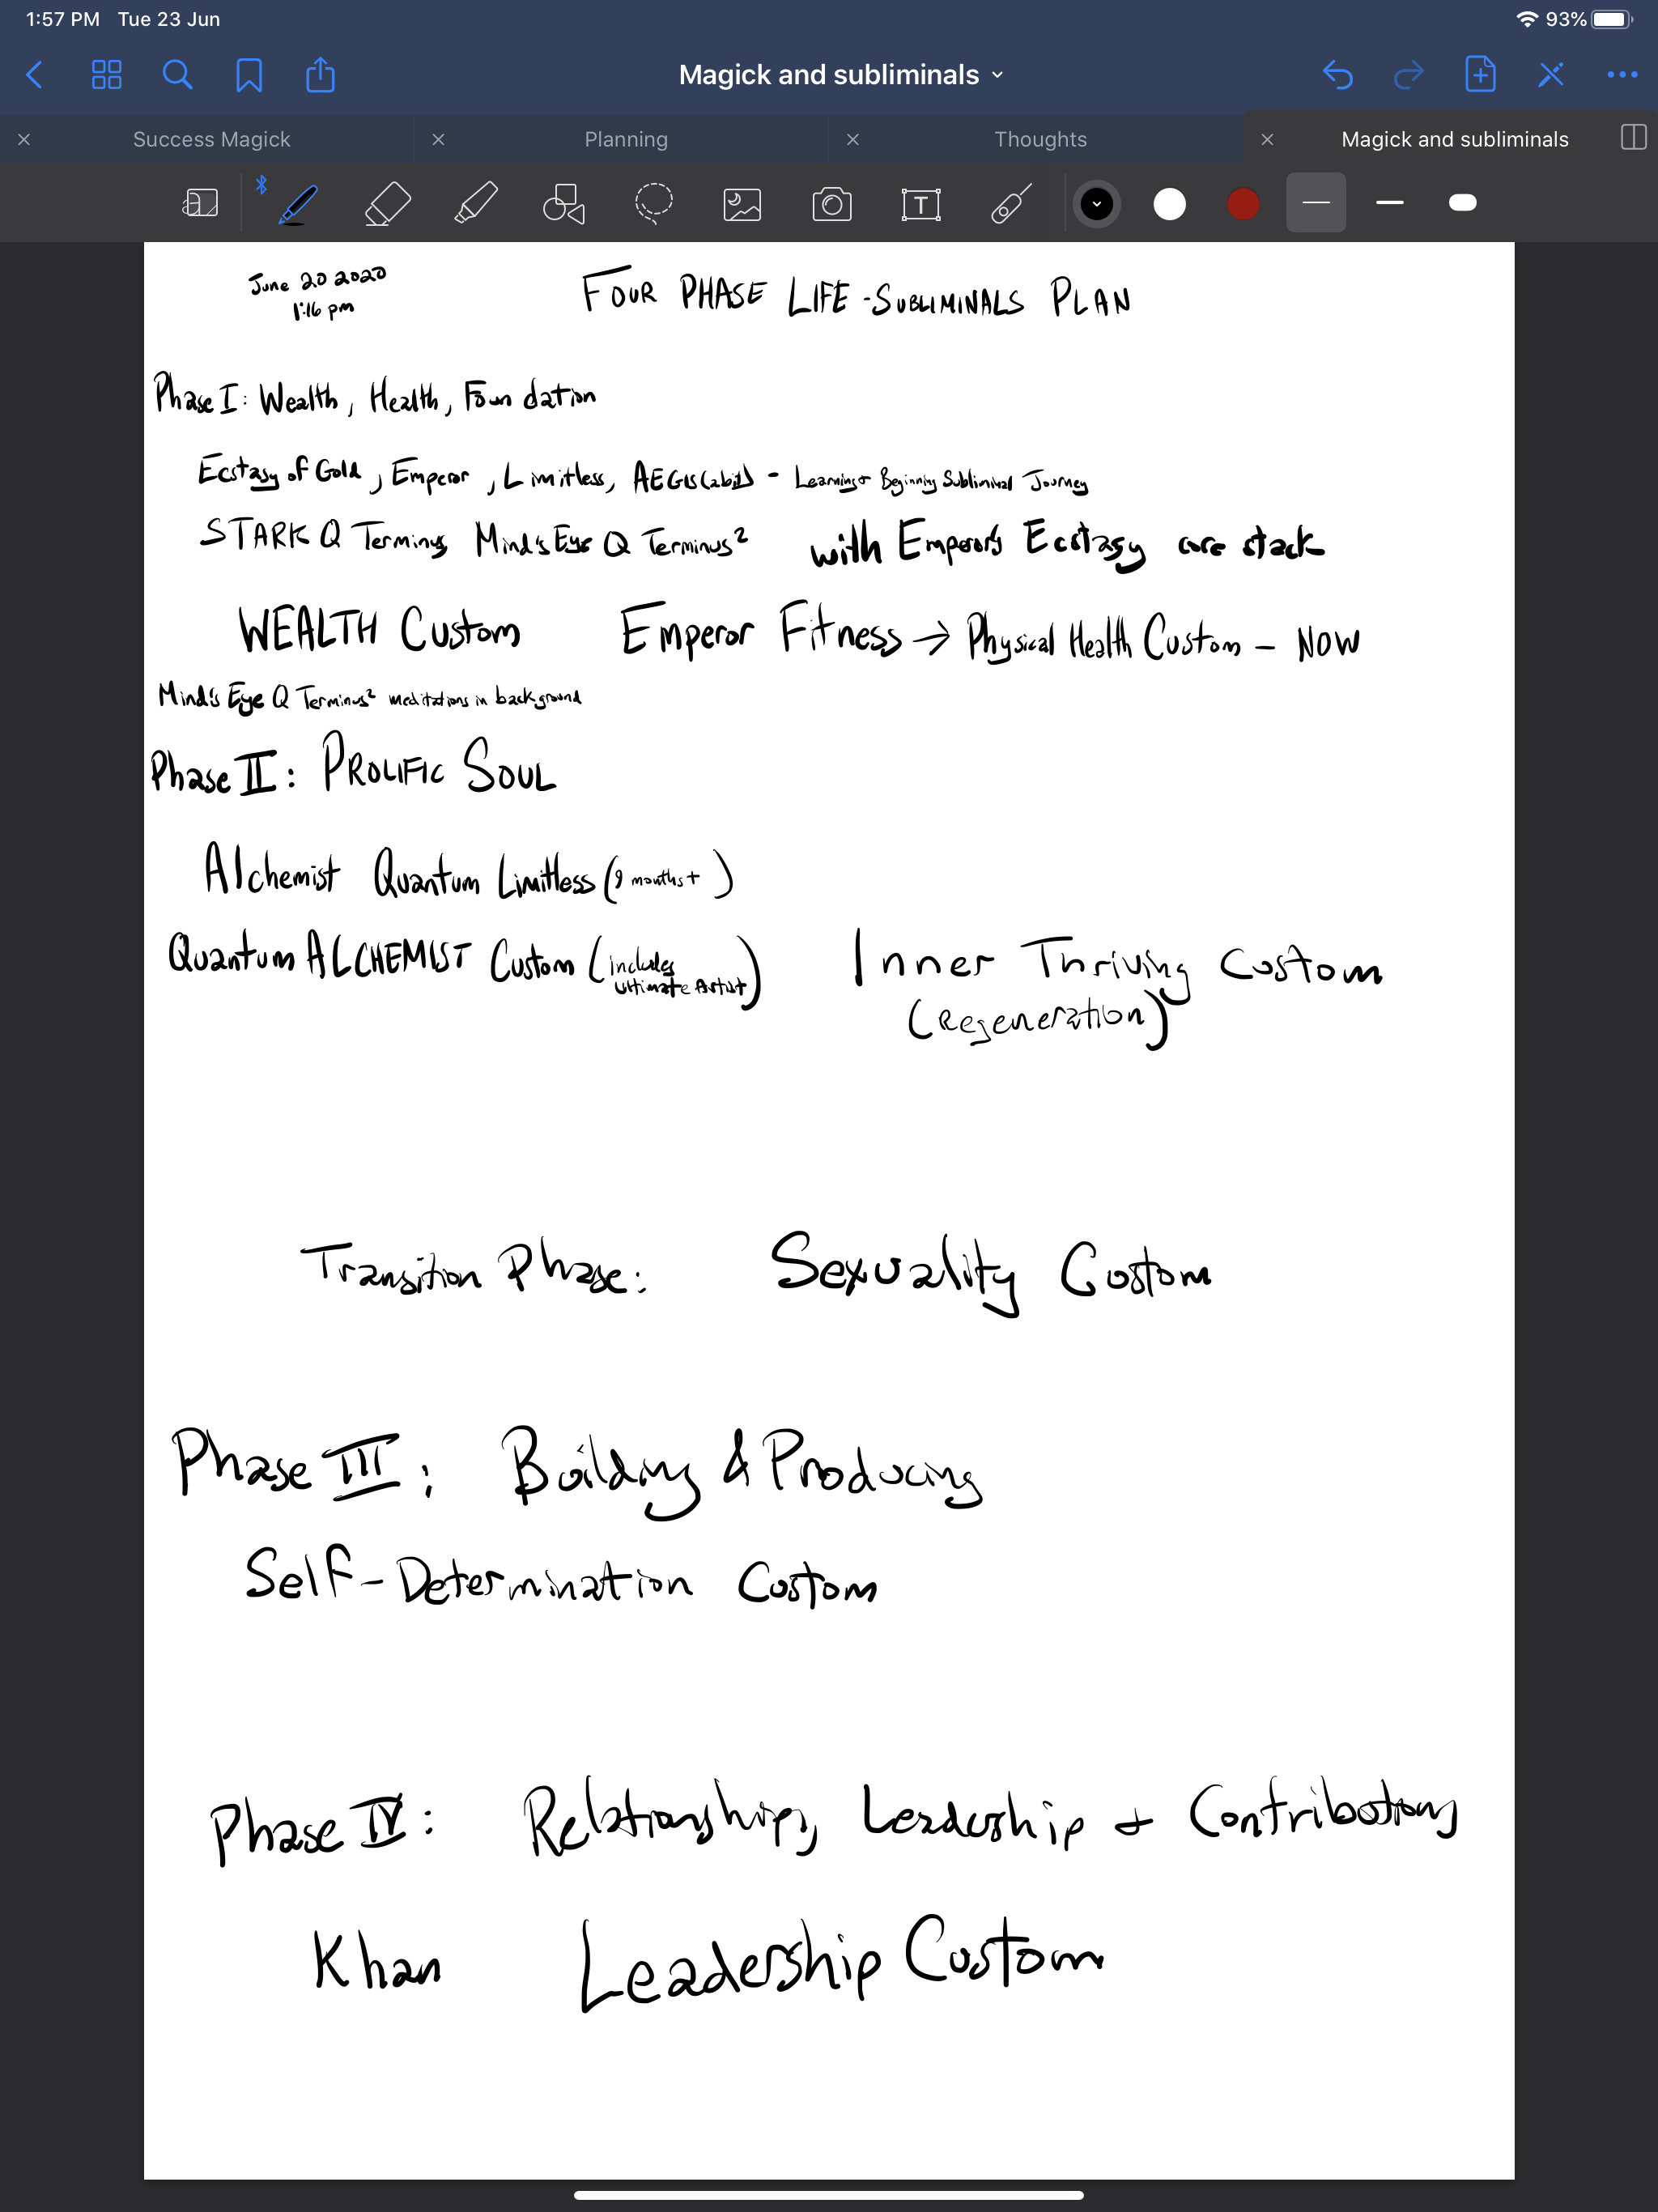 1:57 PM Tue 23 Jun 93%
Magick and subliminals
Success Magick Planning Thoughts Magick and subliminals
T
June 20 2020
1:16 pm
FOUR PHASE LIFE-SUBLIMINALS PLAN
Phase I: Wealth, Health, Foundation
Ecstasy of Gold, Emperor, Limitless, AEGIS (abit) - Learning + Beginning Subliminal Journey
STARK Q Terminus Mind's Eye Q Terminus² with Emperor's Ecstasy core stack
WEALTH Custom Emperor Fitness → Physical Health Custom - NOW
Mind's Eye Q Terminus² meditations in background
Phase II: PROLIFIC SOUL
Alchemist Quantum Limitless ( months +)
Quantum ALCHEMIST Custom (includes
Ultimate Artist)
Inner Thriving Custom
(Regeneration)
Transition Phase: Sexuality Custom
Phase III: Building & Producing
Self-Determination Custom
Phase IV: Relationships, Leadership + Contributions
Khan Leadership Custom